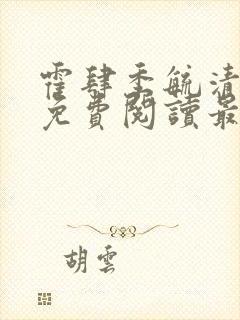 霍肆季毓清
免費閱讀最
胡雲